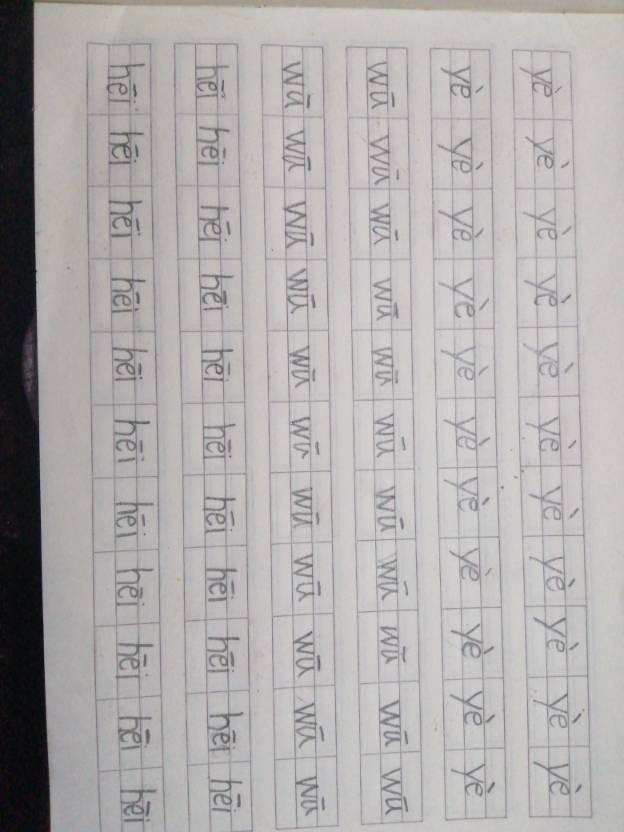 yè yè yè yè yè yè yè yè yè yè yè
yè yè yè yè yè yè yè yè yè yè yè
wū wū wū wū wū wū wū wū wū wū wū
wū wū wū wū wū wū wū wū wū wū wū
hēi hēi hēi hēi hēi hēi hēi hēi hēi hēi hēi
hēi hēi hēi hēi hēi hēi hēi hēi hēi hēi hēi